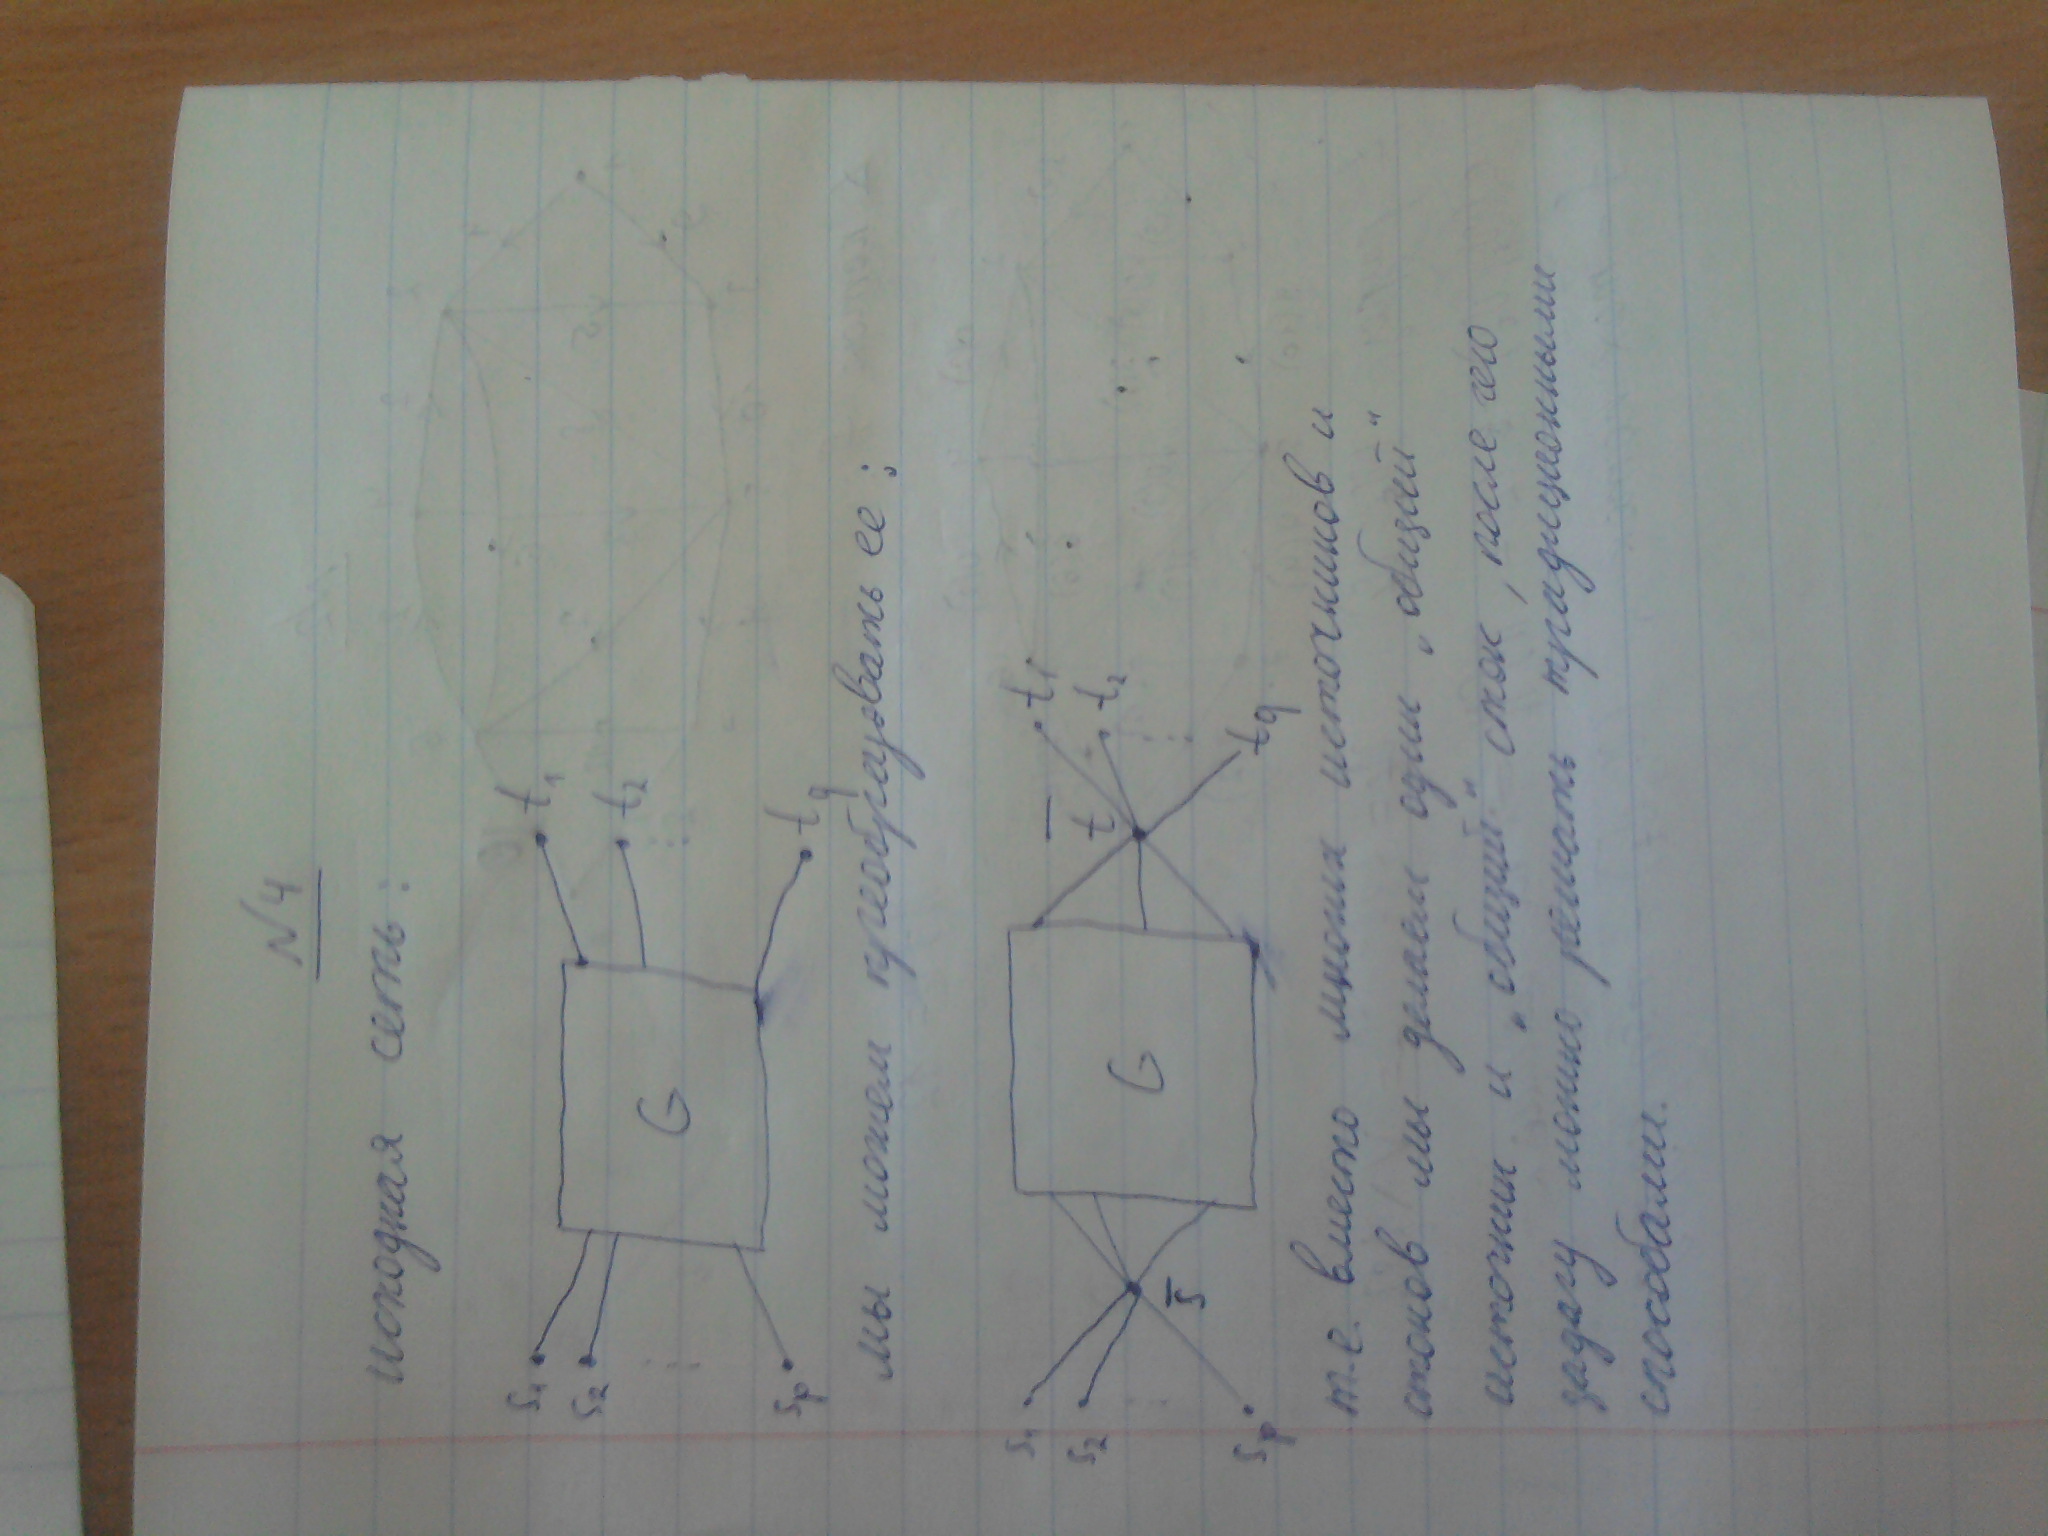 №4
исходная сеть:
s₁ t₁
s₂ t₂
G
sₚ t_q
мы можем преобразовать ее;
s₁ t₁
s₂ t̄ t₂
G
s̄
sₚ t_q
т.е. вместо многих источников и
стоков мы делаем один „общий“
источник и „общий“ сток, после чего
задачу можно решать традиционными
способами.